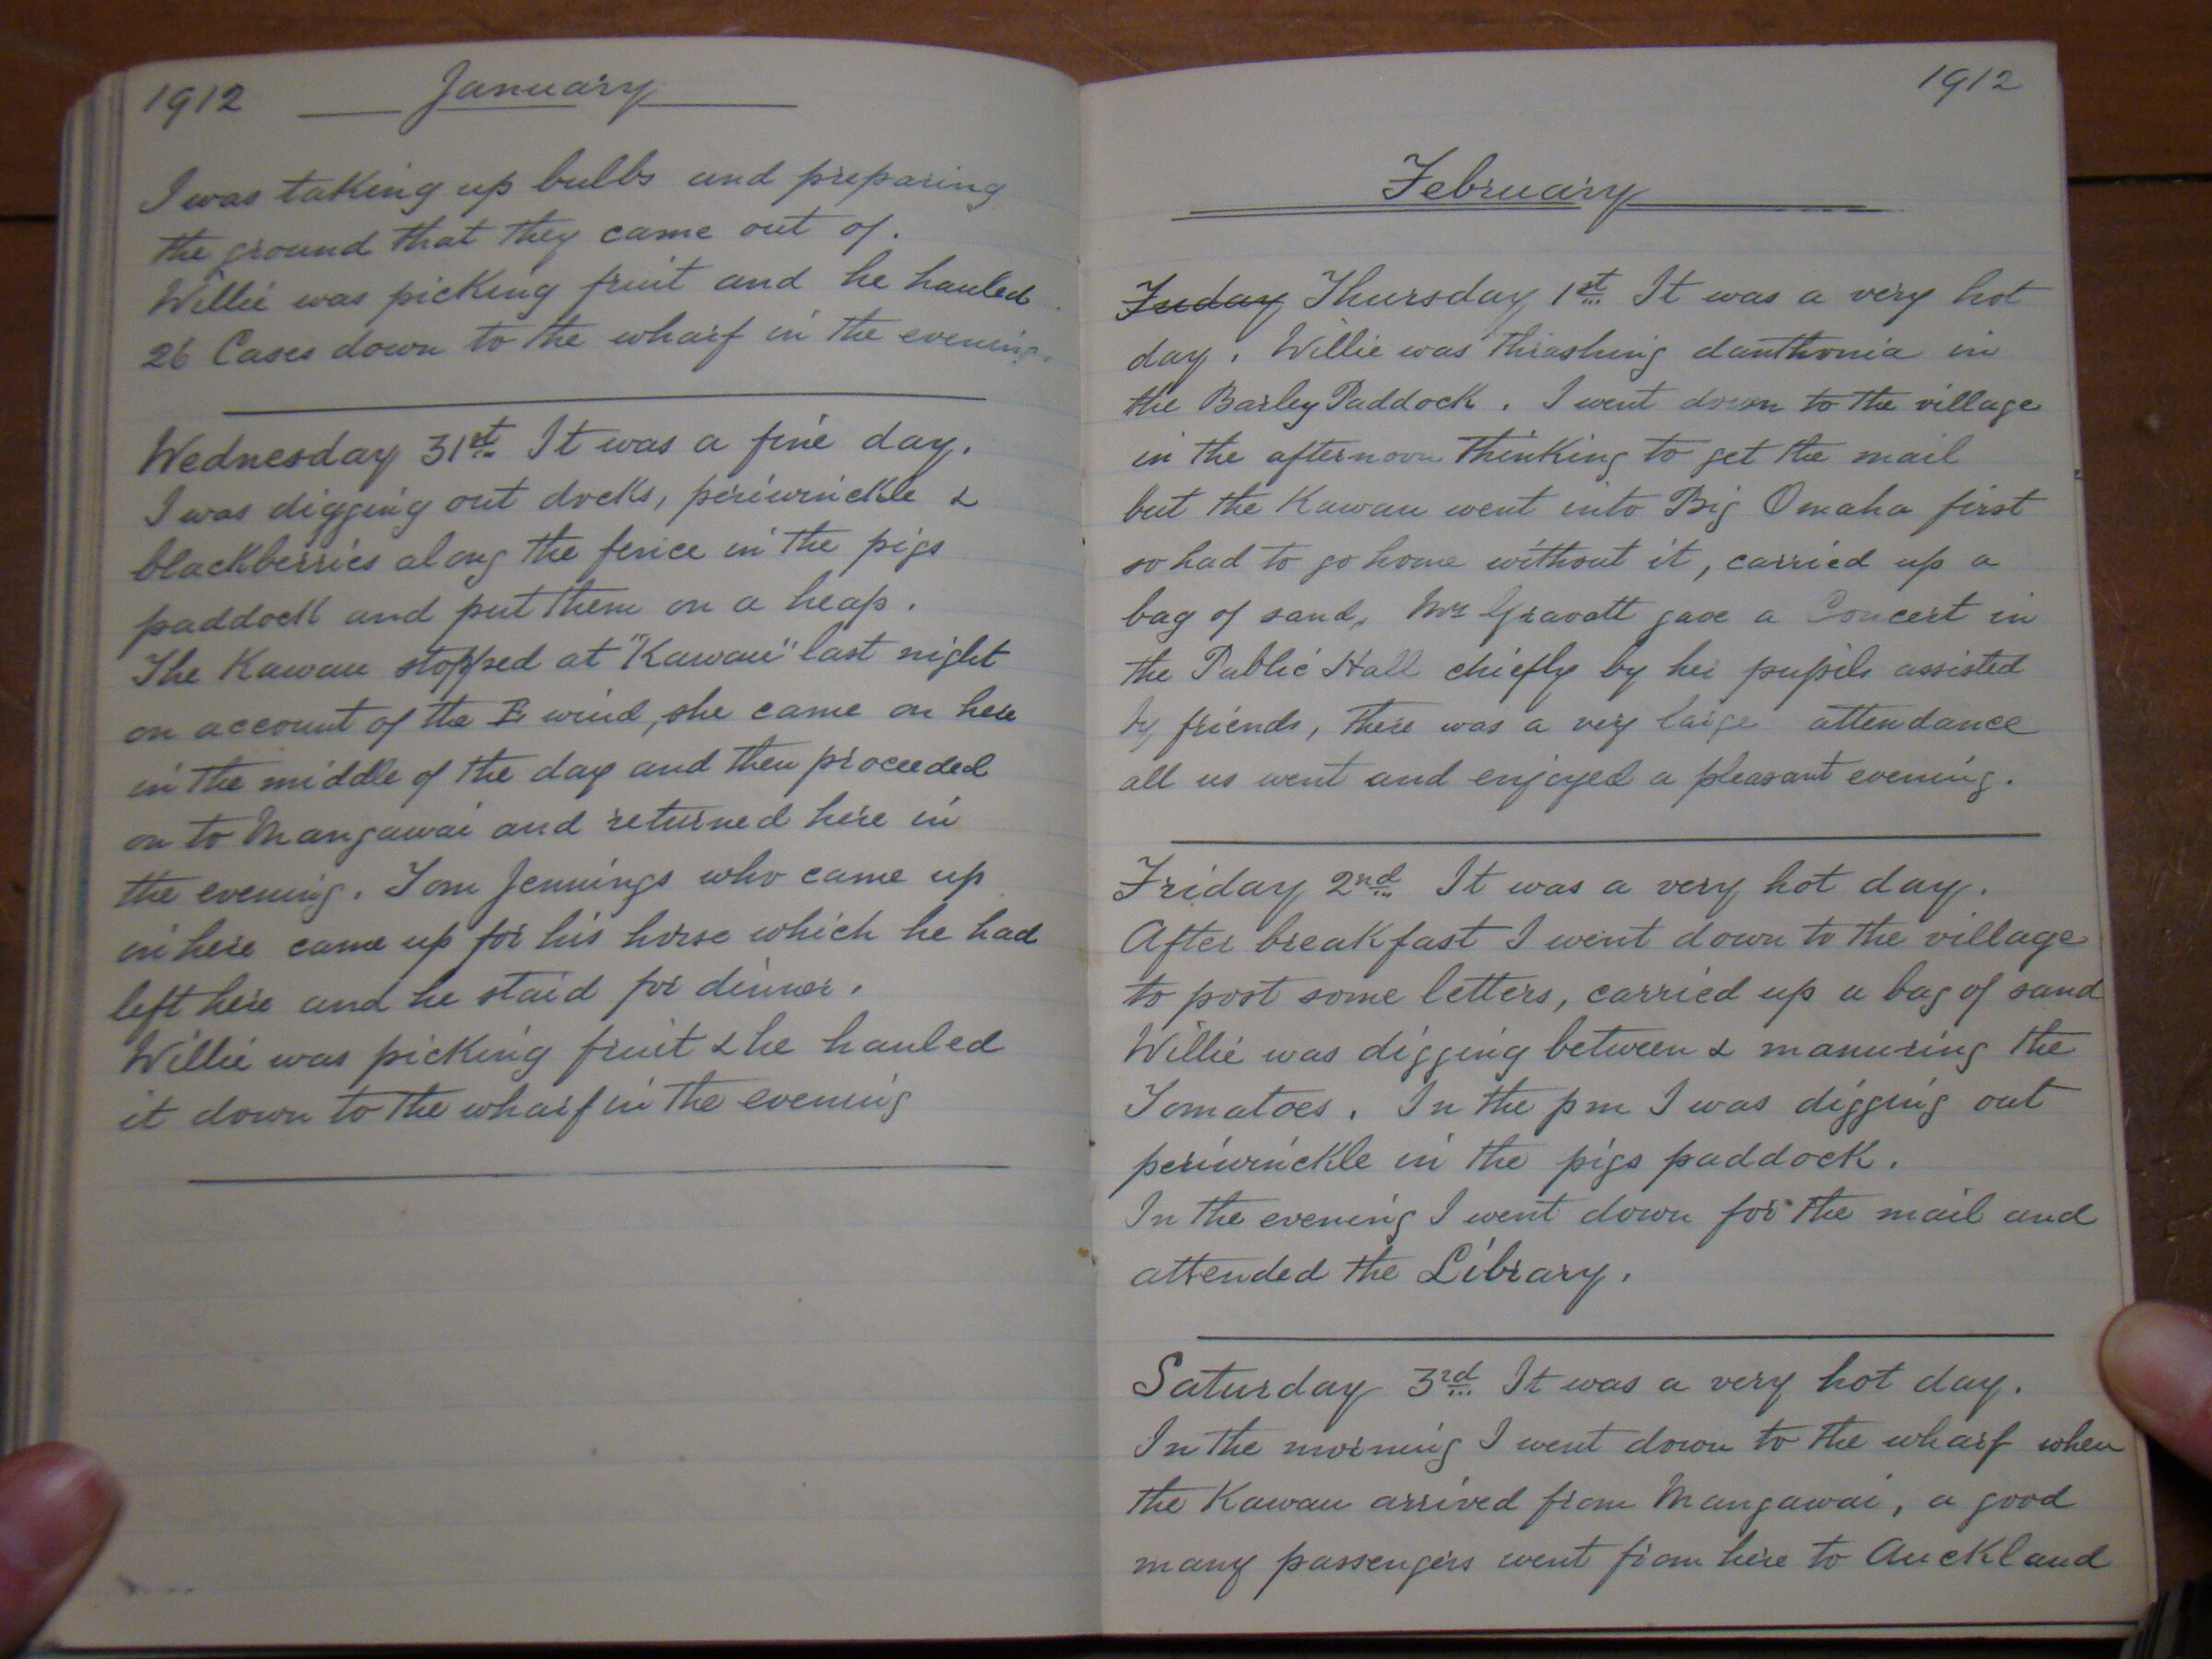 1912 January
I was taking up bulbs and preparing
the ground that they came out of.
Willie was picking fruit and he hauled
26 Cases down to the wharf in the evening.
Wednesday 31st It was a fine day.
I was digging out docks, periwinckle &
blackberries along the fence in the pigs
paddock and put them on a heap.
The Kawau stopped at "Kawau" last night
on account of the E wind, she came on here
in the middle of the day and then proceeded
on to Mangawai and returned here in
the evening. Tom Jennings who came up
in here came up for his horse which he had
left here and he staid for dinner.
Willie was picking fruit & he hauled
it down to the wharf in the evening
1912
February
Friday Thursday 1st It was a very hot
day. Willie was thrashing danthonia in
the Barley Paddock. I went down to the village
in the afternoon thinking to get the mail
but the Kawau went into Big Omaha first
so had to go home without it, carried up a
bag of sand. Mrs Gravatt gave a Concert in
the Public Hall chiefly by her pupils assisted
by friends, there was a very large attendance
all us went and enjoyed a pleasant evening.
Friday 2nd It was a very hot day.
After breakfast I went down to the village
to post some letters, carried up a bag of sand
Willie was digging between & manuring the
Tomatoes. In the pm I was digging out
periwinckle in the pigs paddock.
In the evening I went down for the mail and
attended the Library.
Saturday 3rd It was a very hot day.
In the morning I went down to the wharf when
the Kawau arrived from Mangawai, a good
many passengers went from here to Auckland